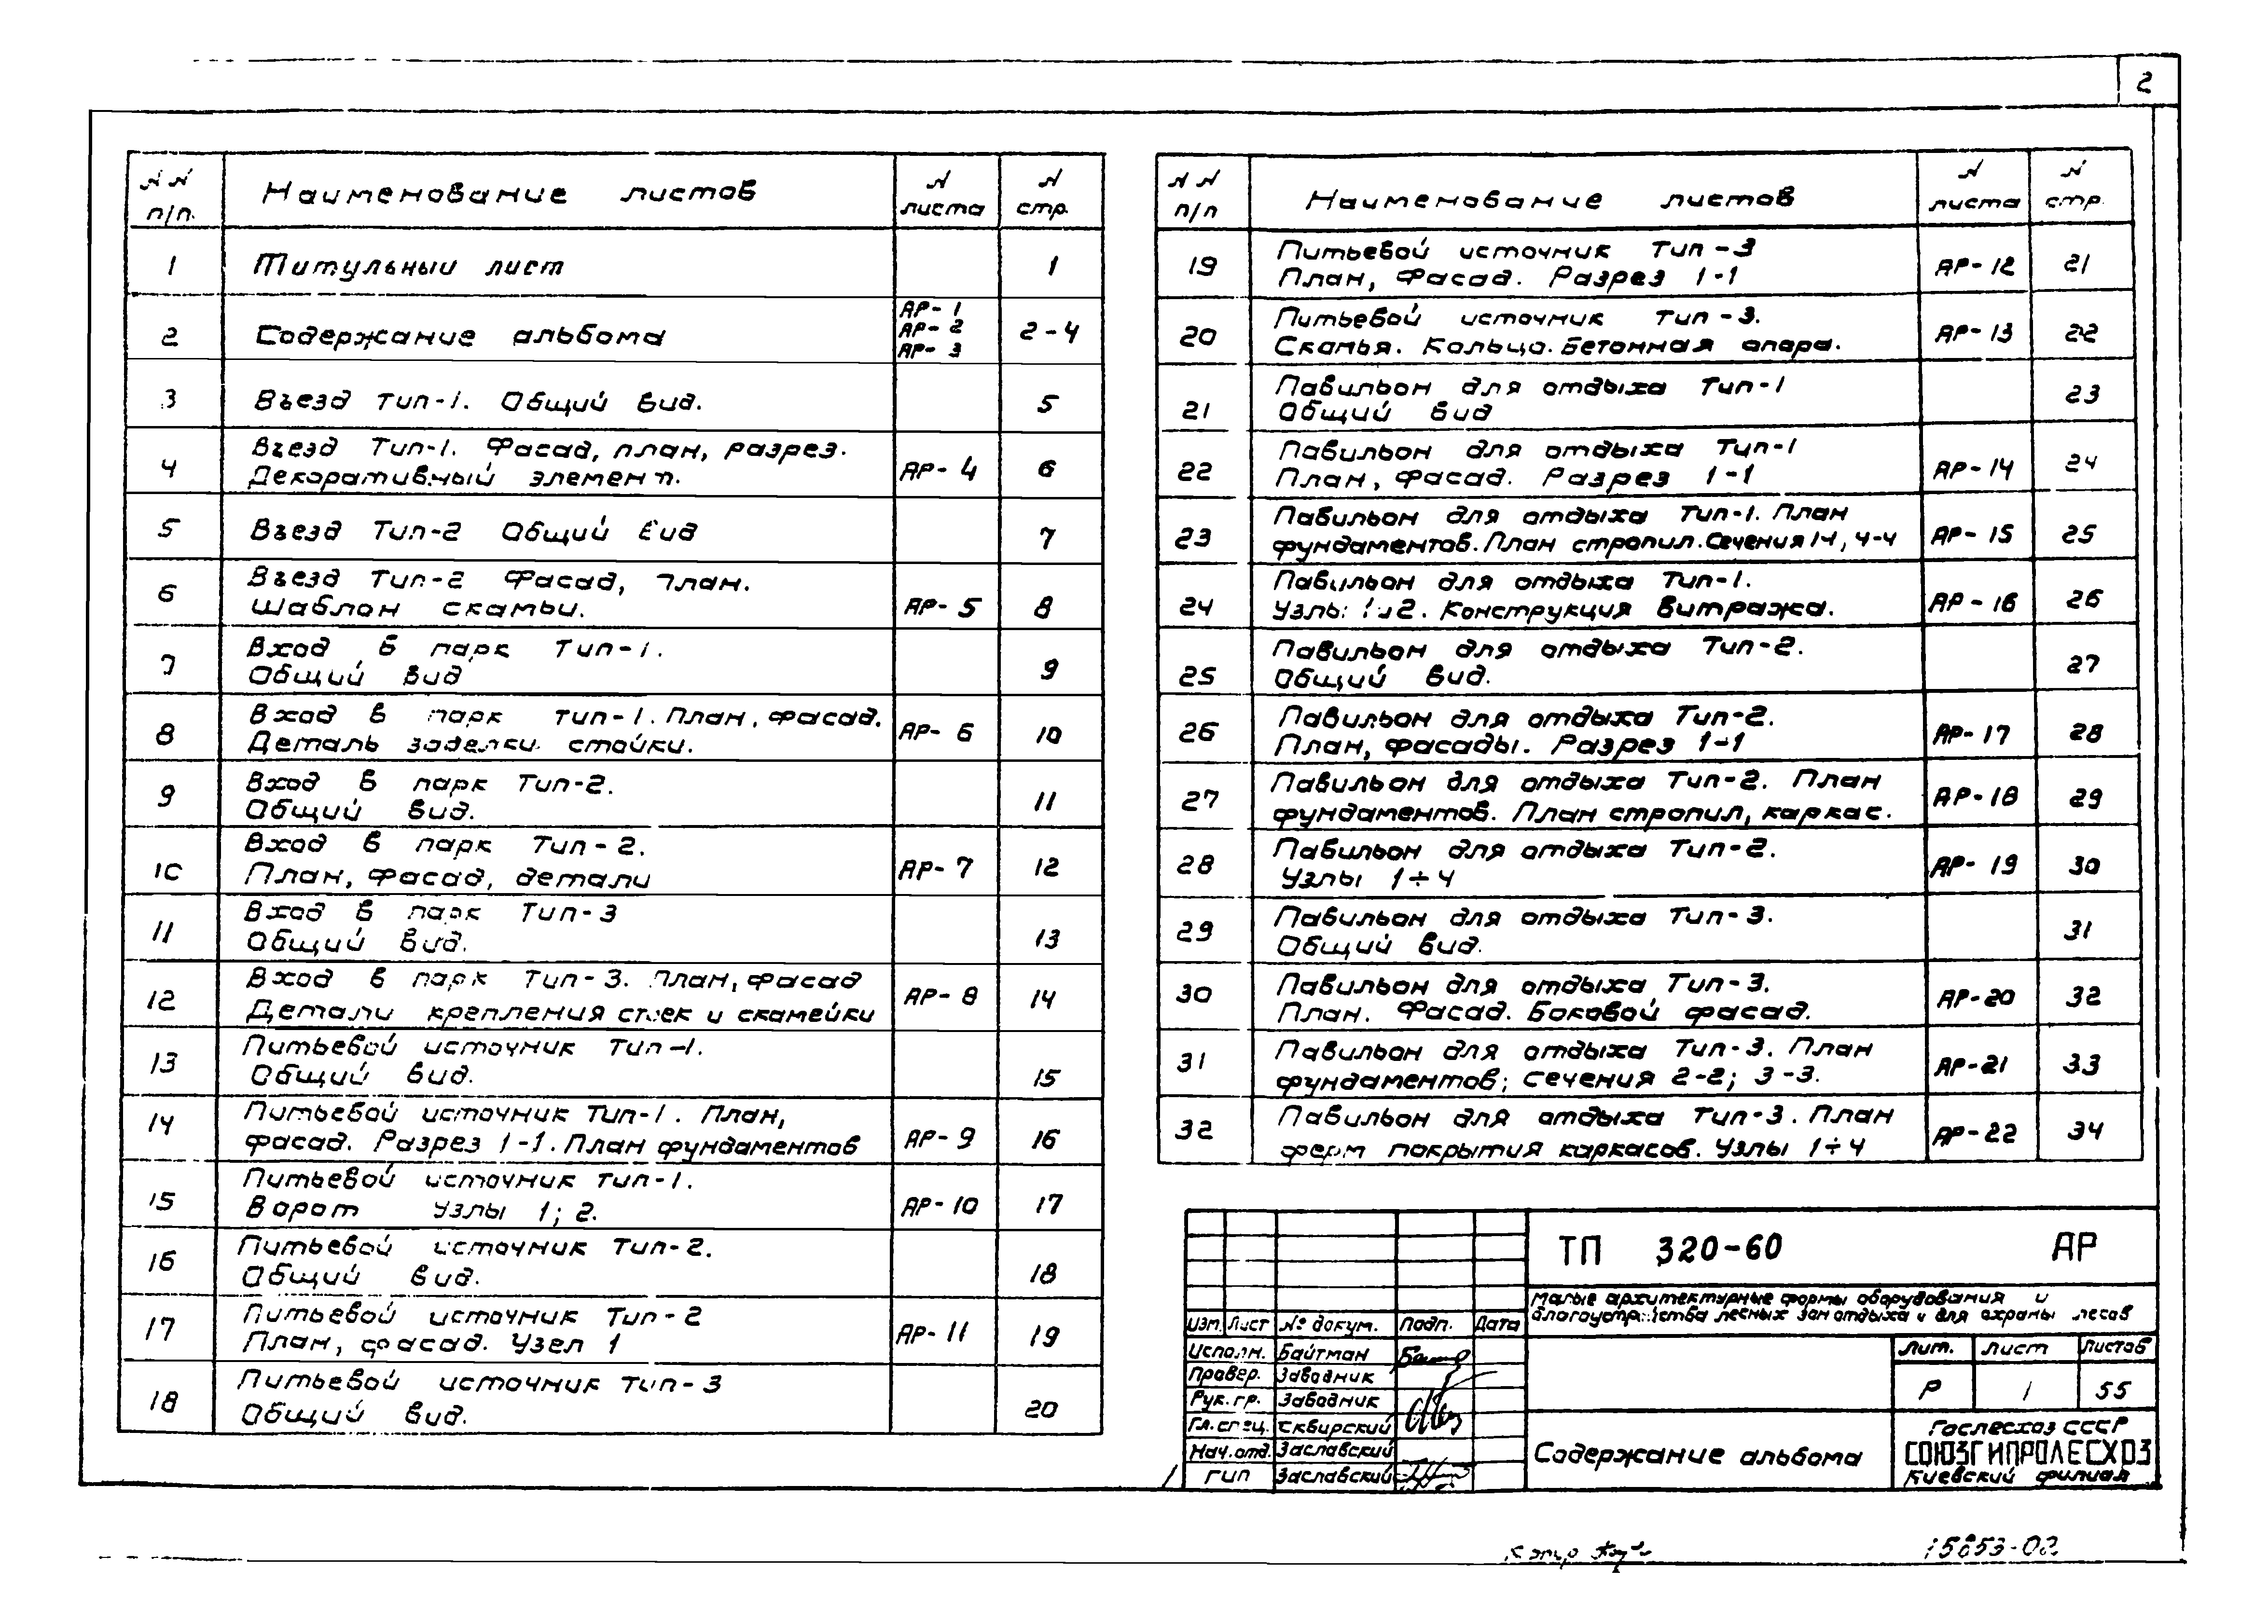 2
NN п/п. Наименование листов N листа N стр.
1 Титульный лист 1
2 Содержание альбома АР-1 АР-2 АР-3 2-4
3 Въезд тип-1. Общий вид. 5
4 Въезд Тип-1. Фасад, план, разрез.
Декоративный элемент. АР-4 6
5 Въезд Тип-2 Общий вид 7
6 Въезд Тип-2 Фасад, план.
Шаблон скамьи. АР-5 8
7 Вход в парк Тип-1.
Общий вид 9
8 Вход в парк тип-1. План, фасад.
Деталь заделки стойки. АР-6 10
9 Вход в парк Тип-2.
Общий вид. 11
10 Вход в парк Тип-2.
План, фасад, детали АР-7 12
11 Вход в парк Тип-3
Общий вид. 13
12 Вход в парк Тип-3. План, фасад
Детали крепления стоек и скамейки АР-8 14
13 Питьевой источник Тип-1.
Общий вид. 15
14 Питьевой источник Тип-1. План,
фасад. Разрез 1-1. План фундаментов АР-9 16
15 Питьевой источник тип-1.
Ворот Узлы 1; 2. АР-10 17
16 Питьевой источник Тип-2.
Общий вид. 18
17 Питьевой источник Тип-2
План, фасад. Узел 1 АР-11 19
18 Питьевой источник тип-3
Общий вид. 20
NN п/п Наименование листов N листа N стр.
19 Питьевой источник Тип-3
План, Фасад. Разрез 1-1 АР-12 21
20 Питьевой источник тип-3.
Скамья. Кольцо. Бетонная опора. АР-13 22
21 Павильон для отдыха Тип-1
Общий вид 23
22 Павильон для отдыха Тип-1
План, фасад. Разрез 1-1 АР-14 24
23 Павильон для отдыха Тип-1. План
фундаментов. План стропил. Сечения 1-1, 4-4 АР-15 25
24 Павильон для отдыха Тип-1.
Узлы 1и2. Конструкция витража. АР-16 26
25 Павильон для отдыха Тип-2.
Общий вид. 27
26 Павильон для отдыха Тип-2.
План, фасады. Разрез 1-1 АР-17 28
27 Павильон для отдыха Тип-2. План
фундаментов. План стропил, каркас. АР-18 29
28 Павильон для отдыха Тип-2.
Узлы 1÷4 АР-19 30
29 Павильон для отдыха Тип-3.
Общий вид. 31
30 Павильон для отдыха Тип-3.
План. Фасад. Боковой фасад. АР-20 32
31 Павильон для отдыха Тип-3. План
фундаментов; сечения 2-2; 3-3. АР-21 33
32 Павильон для отдыха Тип-3. План
ферм покрытия каркасов. Узлы 1÷4 АР-22 34
ТП 320-60 АР
Малые архитектурные формы оборудования и
благоустройства лесных зон отдыха и для охраны лесов
Изм. Лист № докум. Подп. Дата
Исполн. Байтман
Провер. Заводник
Рук. гр. Заводник
Гл. спец. Сквирский
Нач. отд. Заславский
ГИП Заславский
Содержание альбома
Лит. Лист Листов
Р 1 55
Гослесхоз СССР
СОЮЗГИПРОЛЕСХОЗ
Киевский филиал
Копир.
15853-02